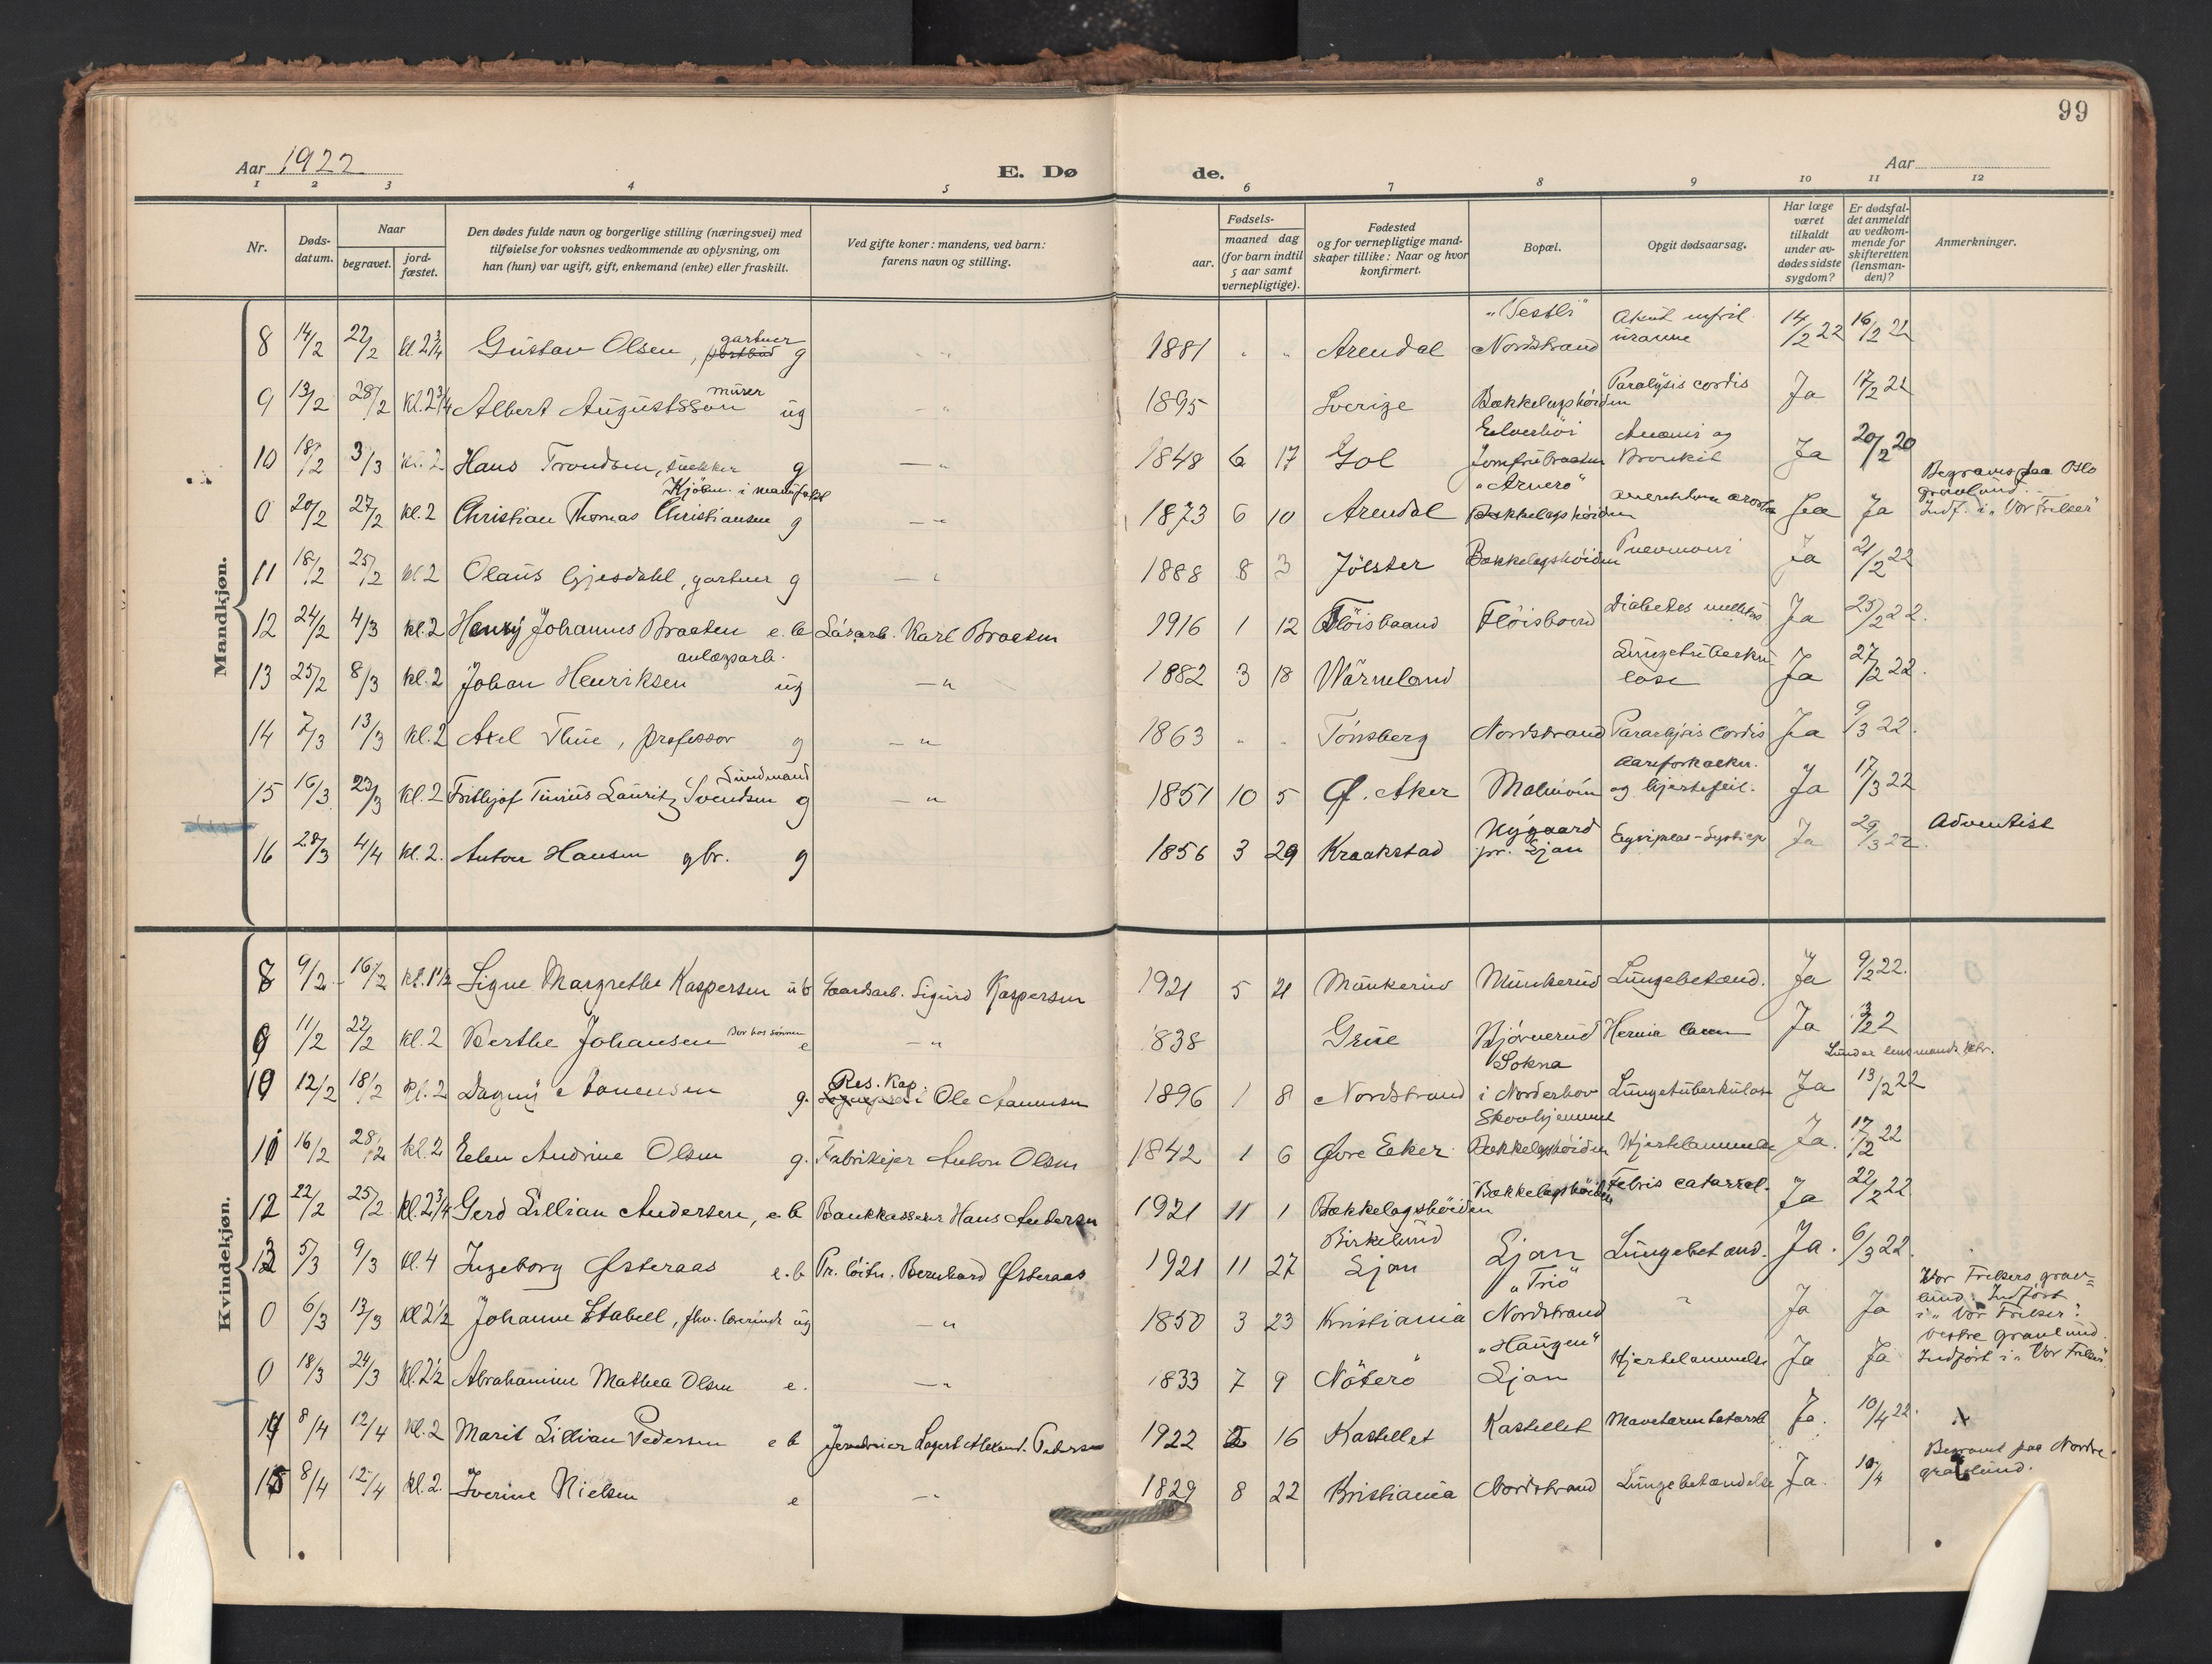 99
Aar 1922
E. Dø
de.
Aar
1 2 3 4 5 6 7 8 9 10 11 12
Nr.
Døds-
datum.
Naar
begravet.
jord-
fæstet.
Den dødes fulde navn og borgerlige stilling (næringsvei) med
tilføielse for voksnes vedkommende av oplysning, om
han (hun) var ugift, gift, enkemand (enke) eller fraskilt.
Ved gifte koner: mandens, ved barn:
farens navn og stilling.
Fødsels-
aar.
maaned dag
(for barn indtil
5 aar samt
vernepligtige).
Fødested
og for vernepligtige mand-
skaper tillike: Naar og hvor
konfirmert.
Bopæl.
Opgit dødsaarsag.
Har læge
været
tilkaldt
under av-
dødes sidste
sygdom?
Er dødsfal-
det anmeldt
av vedkom-
mende for
skifteretten
(lensman-
den)?
Anmerkninger.
Mandkjøn.
8 14/2 22/2 kl 2 3/4 Gustav Olsen, gartner g 1881 Arendal Nordstrand 14/2 22 16/2 22
9 13/2 28/2 kl. 2 3/4 Albert Augustsson murer ug 1895 Sverige Bækkelagshöiden Paralysis cordis Ja 17/2 22
10 18/2 3/3 kl. 2 Hans Trondsen, snekker g 1848 6 17 Gol Jomfrubraaten Anæmi og Bronkit Ja 20/2 20
0 20/2 27/2 kl. 2 Christian Thomas Christiansen g 1873 6 10 Arendal Bækkelagshöiden Ja Ja Begraves paa Oslo
gravlund.
Indf. i "Vor Frelser"
11 18/2 25/2 kl 2 Olaus Gjesdahl, gartner g 1888 8 3 Jölster Bækkelagshöiden Pneumoni Ja 21/2 22
12 24/2 4/3 kl. 2 Henry Johannes Braaten e.b Karl Braaten 1916 1 12 Flöisbaand Flöisbaand Diabetes mellitus Ja 25/2 22.
13 25/2 8/3 kl. 2 Johan Henriksen anlægsarb. ug 1882 3 18 Wärmland Lungetuberku-
lose Ja 27/2 22.
14 7/3 13/3 kl. 2 Axel Thue, professor g 1863 Tönsberg Nordstrand Pararlysis Cordis Ja 9/3 22.
15 16/3 23/3 kl. 2 Frithjof Tinius Lauritz Svendsen g 1851 10 5 Ø. Aker Malmöen Aareforkalkn.
og hjertefeil. Ja 17/3 22
16 28/3 4/4 kl. 2. Anton Hansen gbr. g 1856 3 29 Kraakstad Nygaard
pr. Ljan Ja 29/3 22. Adventist
Kvindekjøn.
8 9/2 16/2 kl. 1 1/2 Signe Margrethe Kaspersen ub Gaardsarb. Sigurd Kaspersen 1921 5 21 Munkerud Munkerud Lungebetænd. Ja 9/2 22.
9 11/2 22/2 kl. 2 Berthe Johansen Bor hos sönnen e 1838 Grue Bjørnerud Hernia Ja
10 12/2 18/2 kl. 2 Dagny Aanensen g. Res. Kap. Ole Aanensen 1896 1 8 Nordstrand Sokna
i Norderhov Lungetuberkulose Ja 13/2 22
11 16/2 28/2 kl. 2 Elen Andrine Olsen g. Fabrikejer Anton Olsen 1842 1 6 Øvre Eker Skovhjemmet
Bækkelagshöiden Hjertelammelse Ja. 17/2 22
12 22/2 25/2 kl. 2 3/4 Gerd Lillian Andersen, e.b Bankkasserer Hans Andersen 1921 11 1 Bækkelagshöiden Bækkelagshöiden Febris catarral. Ja 22/2 22
13 5/3 9/3 kl. 4 Ingeborg Østeraas e.b Pr. löitn. Bernhard Østeraas 1921 11 27 Birkelund
Ljan Ljan Lungebetænd. Ja. 6/3 22.
0 6/3 13/3 kl 2 1/2 Johanne Stabell, fhv. ug 1850 3 23 Kristiania "Trio"
Nordstrand Ja Ja Vor Frelsers grav-
lund. Indført
i "Vor Frelser".
0 18/3 24/3 kl. 2 1/2 Abrahamine Mathea Olsen e. 1833 7 9 Nöterö "Haugen"
Ljan Hjertelammelse Ja Ja Vestre gravlund.
Indført i "Vor Frelser"
14 8/4 12/4 kl. 2 Marit Lillian Pedersen e b Pedersen 1922 2 16 Kastellet Kastellet Mavetarmkatarrh Ja. 10/4 22.
15 8/4 12/4 kl. 2. Iverine Nielsen e 1829 8 22 Kristiania Nordstrand Lungebetændelse Ja. 10/4 Begravet paa Nordre
gravlund.